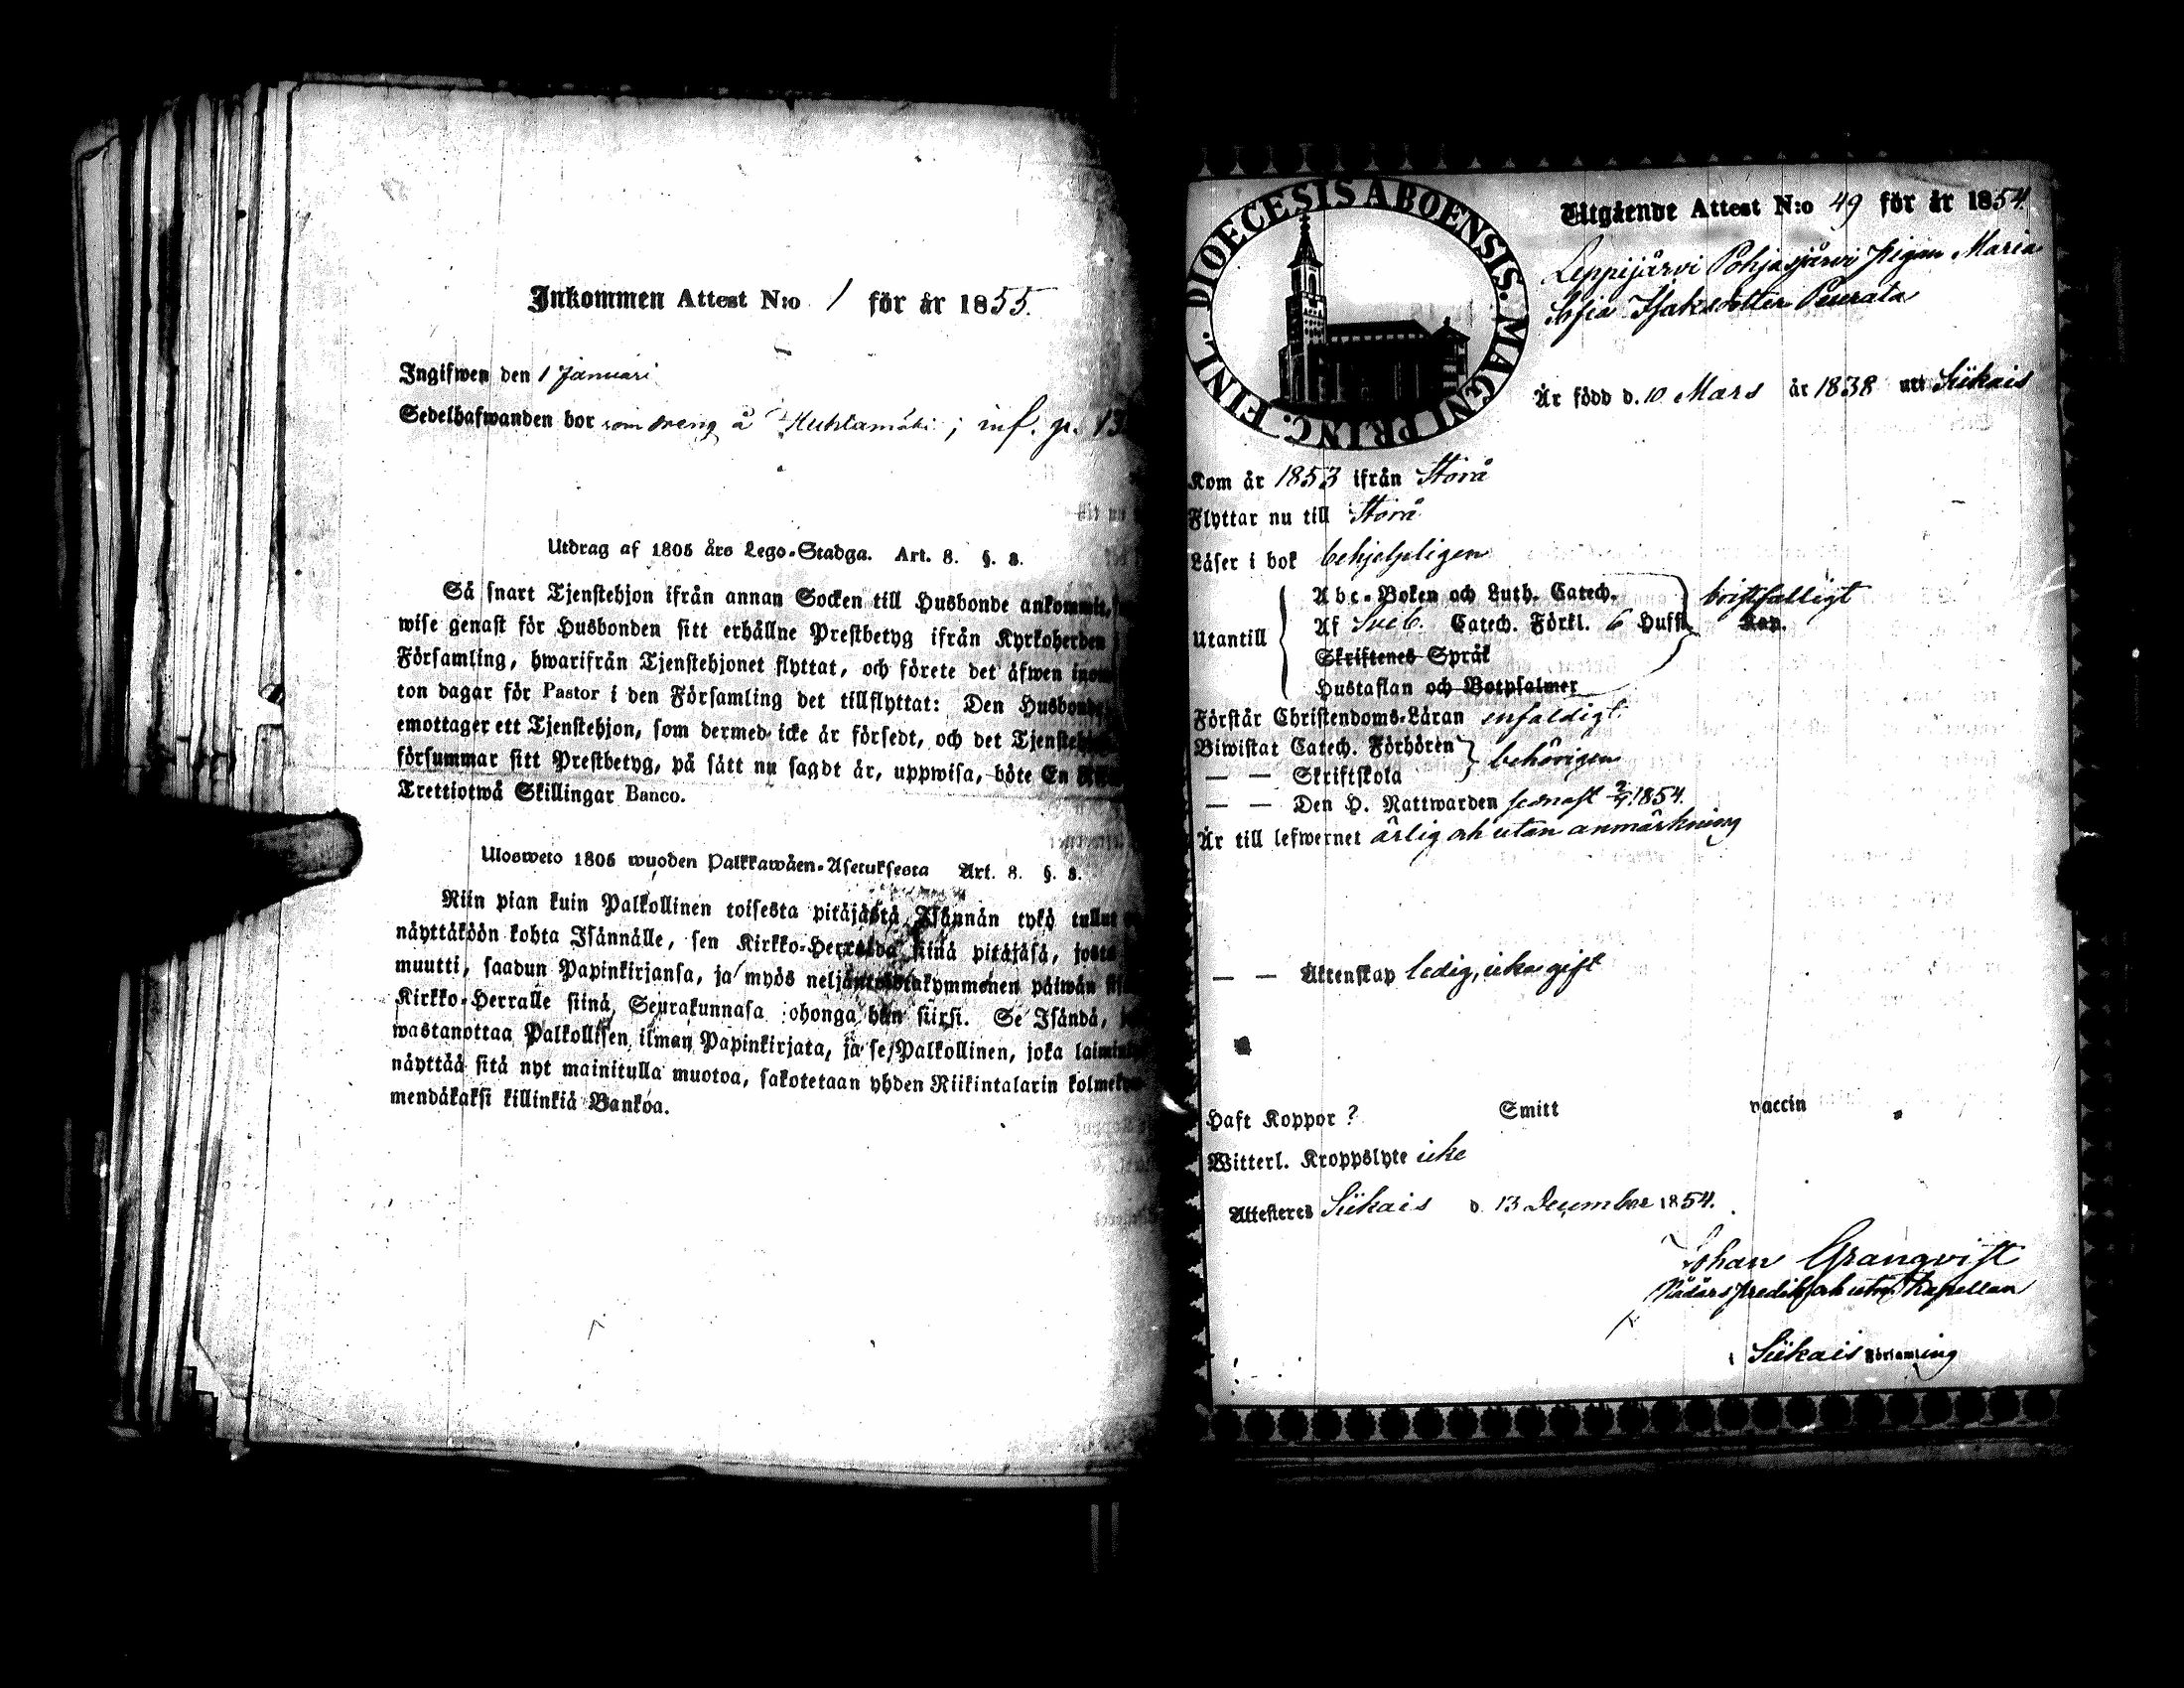 Inkommen Attest N:o 1 för år 1855.
Ingifwen den 1 Januari
Sedelhafwanden bor som dreng å Huhtamäki; inf. p. 13
Utdrag af 1805 års Lego-Stadga. Art. 8. §. 8.
Så snart Tjenstehjon ifrån annan Socken till Husbonde ankommit,
wise genast för Husbonden sitt erhållne Prestbetyg ifrån Kyrkoherden
Församling, hwarifrån Tjenstehjonet flyttat, och förete det äfwen inom
ton dagar för Pastor i den Församling det tillflyttat: Den Husbonde
emottager ett Tjenstehjon, som dermed icke är försedt, och det
försummar sitt Prestbetyg, på sätt nu sagdt är, uppwisa, böte En
Trettiotwå Skillingar Banco.
Ulosweto 1805 wuoden Palkkawäen-Asetuksesta Art. 8. §. 8.
Niin pian kuin Palkollinen toisesta pitäjästä Isännän tykö tullut
näyttäköön kohta Isännälle, sen Kirkko-Herralda siinä pitäjäsä, josta
muutti, saadun Papinkirjansa, ja myös neljäntoistakymmenen päiwän
Kirkko-Herralle siinä Seurakunnasa johonga hän siirsi. Se Isändä,
wastanottaa Palkollisen ilman Papinkirjata, ja se Palkollinen, joka
näyttää sitä nyt mainitulla muotoa, sakotetaan yhden Riikintalarin
mendäkaksi killinkiä Bankoa.
DIOECESIS ABOENSIS. MAGNI PRINC. FINL.
Utgående Attest N:o 49 för år 1854.
Leppijärvi Pohjasjärvi Pigan Maria
Sofia Isaksdotter Peurala
Är född d. 10 Mars år 1838 uti Siikais
Kom år 1853 ifrån Storå
Flyttar nu till Storå
Läser i bok behjelpligen
Utantill
Abc-Boken och Luth. Catech.
Af Sveb. Catech. Förkl. 6 Hufst. Kap.
Skriftenes Språk
Hustaflan och Botpsalmer
bristfälligt
Förstår Christendoms-Läran enfaldigt
Biwistat Catech. Förhören
— — Skriftskola
behörigen
— — Den H. Nattwarden senast 2/7 1854.
Är till lefwernet ärlig och utan anmärkning
— — Äktenskap ledig, icke gift
Haft Koppor? Smitt vaccin
Witterl. Kroppslyte icke
Attesteres Siikais d. 13 December 1854.
Johan Granqvist
Nådårspredik. och utn. Kapellan
i Siikais Församling